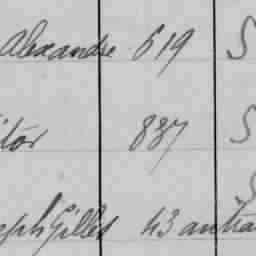 Alexandre 619 S
itor 837 S
seph Gilles 43 antra